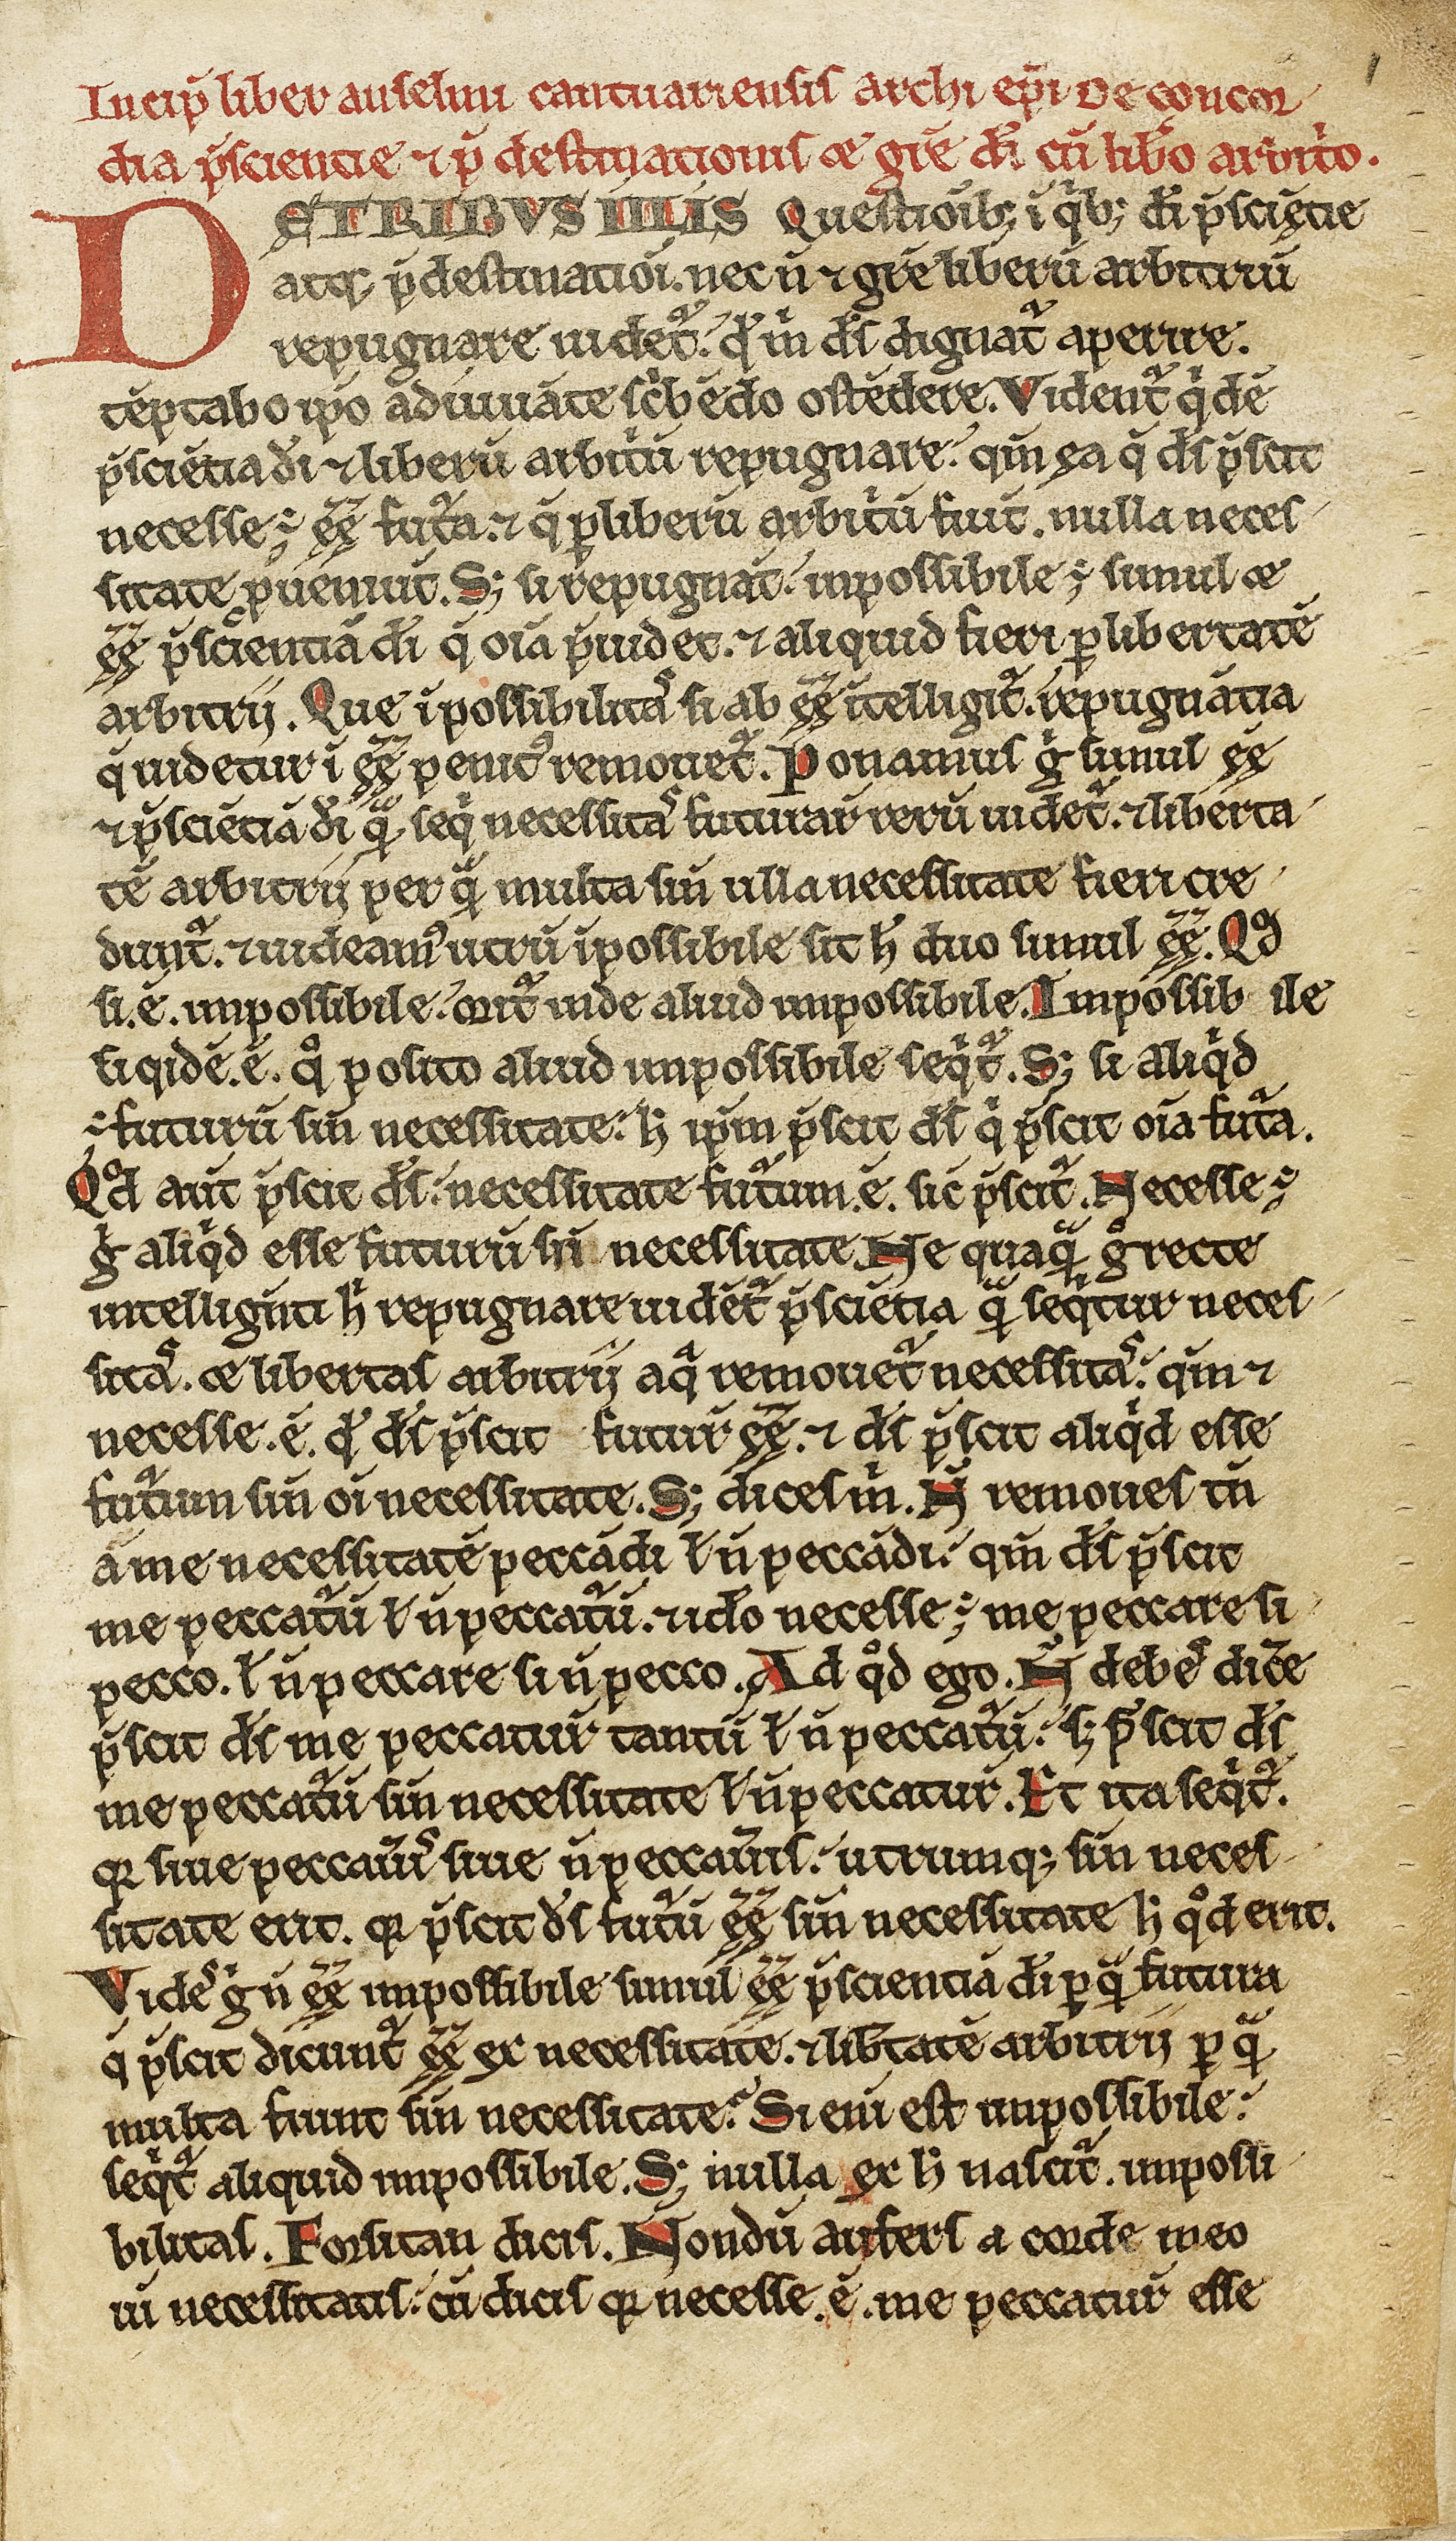 Incip̄ liber anselmi cantuariensis archi ep̄i De concor
dia p̄sciencie ⁊ p̄destinacionis ⁊ gr̄e dī cū lib̄o arbit̾o.
DE TRIBVS ILLIS Questiōib; ī qib; dī p̄sciētie
atq; p̄destinatiōi. nec n̄ ⁊ gr̄e liberū arbitriū
repugnare uidet᷑. qd̾ m̄ ds̄ dignat᷑ aperire.
tēptabo ip̄o adiuuāte sc̾bēdo ostēdere. Vident᷑ qidē
p̄sciētia dī ⁊ liberū arbit̾ū repugnare. qm̄ ea q̄ ds̄ p̄scit
necesse ÷ ēē fut᷑a. ⁊ q̄ ꝑ liberū arbit̾ū fiūt. nulla neces
sitate ꝓueniūt. S; si repugnāt. inpossibile ÷ simul ⁊
ēē p̄scientiā dī q̄ oīa p̄uidet. ⁊ aliquid fieri ꝑ libertatē
arbitrij. Que īpossibilitas si ab ēē ītelligit᷑. repugnātia
q̄ uidetur ī ēē penit᷒ remouet᷑. Ponamus g̾ simul ēē
⁊ p̄sciētiā dī quā seqi necessitas futurar̄ rerū uidet᷑. ⁊ liberta
tē arbitrij per quā multa sīn ulla necessitate fieri cre
dunt᷑. ⁊ uideam᷒ utrū īpossibile sit h̄ duo simul ēē. Qd
si .ē. impossibile. orit᷑ inde aliud impossibile. Impossib ile
siqidē .ē. q° posito aliud impossibile seqit᷑. S; si aliqid
÷ futurū sīn necessitate. h̄ ip̄m p̄scit ds̄ qi p̄scit oīa fut᷑a.
Qd aūt p̄scit ds̄. necessitate fut᷑um .ē. sic̄ p̄scit᷑. Necesse ÷
g̾ aliqid esse futurū sīn necessitate. Ne quaquā g° recte
intelligēti h̄ repugnare uidēt᷑ p̄sciētia quā seqitur neces
sitas. ⁊ libertas arbitrij a qa remouet᷑ necessitas. qm̄ ⁊
necesse .ē. qd̾ ds̄ p̄scit futur̄ ēē. ⁊ ds̄ p̄scit aliqid esse
fut᷑um sīn oī necessitate. S; dices m̄. N̄ remoues tn̄
a me necessitatē peccādi ł n̄ peccādi. qm̄ ds̄ p̄scit
me peccat᷑ū ł n̄ peccat᷑ū. ⁊ idō necesse ÷ me peccare si
pecco. ł n̄ peccare si n̄ pecco. Ad q°d ego. N̄ debes dic̄e
p̄scit ds̄ me peccatur̄ tantū ł n̄ peccat᷑ū. s; p̄scit ds̄
me peccat᷑ū sīn necessitate ł n̄ peccatur̄. Et ita seqit᷑.
qꝛ siue peccau̾is siue n̄ peccau̾is. utrumq; sīn neces
sitate erit. qꝛ p̄scit ds̄ fut᷑ū ēē sīn necessitate h̄ q°d erit.
Vides g̾ n̄ ēē impossibile simul ēē p̄scientiā dī ꝑ quā futura
q̄ p̄scit dicunt᷑ ēē ex necessitate. ⁊ lib̄tatē arbitrij ꝑ quā
multa fiunt sīn necessitate. Si enī est impossibile.
seqit᷑ aliquid impossibile. S; nulla ex h̄ nascit᷑. impossi
bilitas. Forsitan dicis. Nondū aufers a corde meo
uī necessitatis. cū dicis qꝛ necesse .ē. me peccatur̄ esse